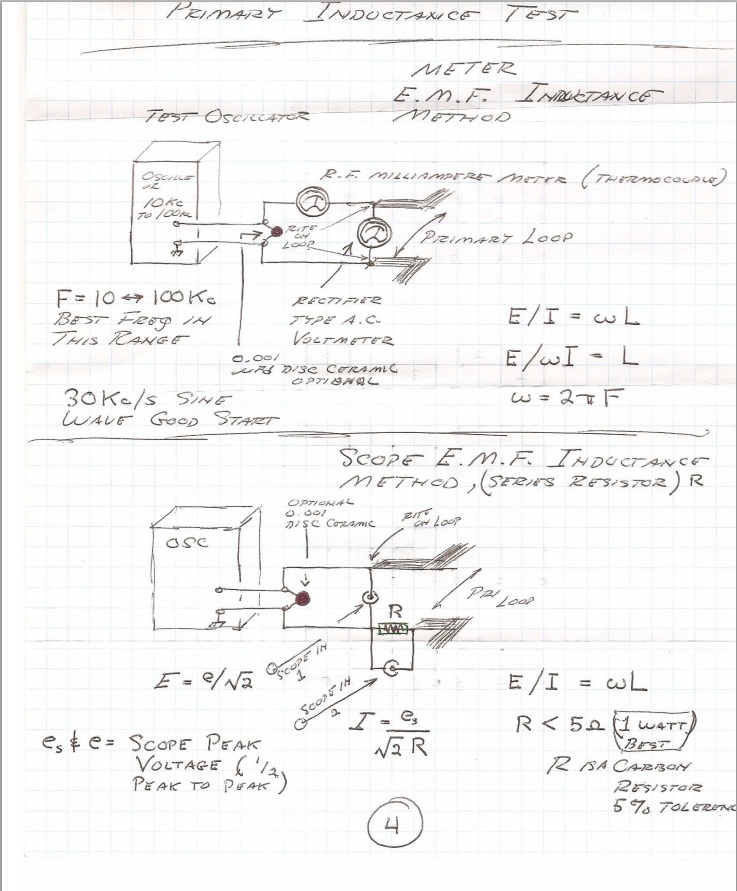 PRIMARY INDUCTANCE TEST
METER
E.M.F. INDUCTANCE
METHOD
TEST OSCILLATOR
R.F. MILLIAMPERE METER (THERMOCOUPLE)
OSCILLE
OR
10KC
TO 100KC
RITE
ON
LOOP
PRIMARY LOOP
F = 10 ↔ 100KC
BEST FREQ IN
THIS RANGE
RECTIFIER
TYPE A.C.
VOLTMETER
0.001
µFD DISC CERAMIC
OPTIONAL
E/I = ωL
E/ωI = L
ω = 2πF
30KC/S SINE
WAVE GOOD START
SCOPE E.M.F. INDUCTANCE
METHOD, (SERIES RESISTOR) R
OPTIONAL
0.001
DISC CERAMIC
RITE
ON LOOP
OSC
PRI LOOP
R
E = e/√2
SCOPE IN
1
SCOPE IN
2
I = es/√2 R
E/I = ωL
R < 5Ω (1 WATT)
BEST
es & e = SCOPE PEAK
VOLTAGE (1/2
PEAK TO PEAK)
R IS A CARBON
RESISTOR
5% TOLERENC
4